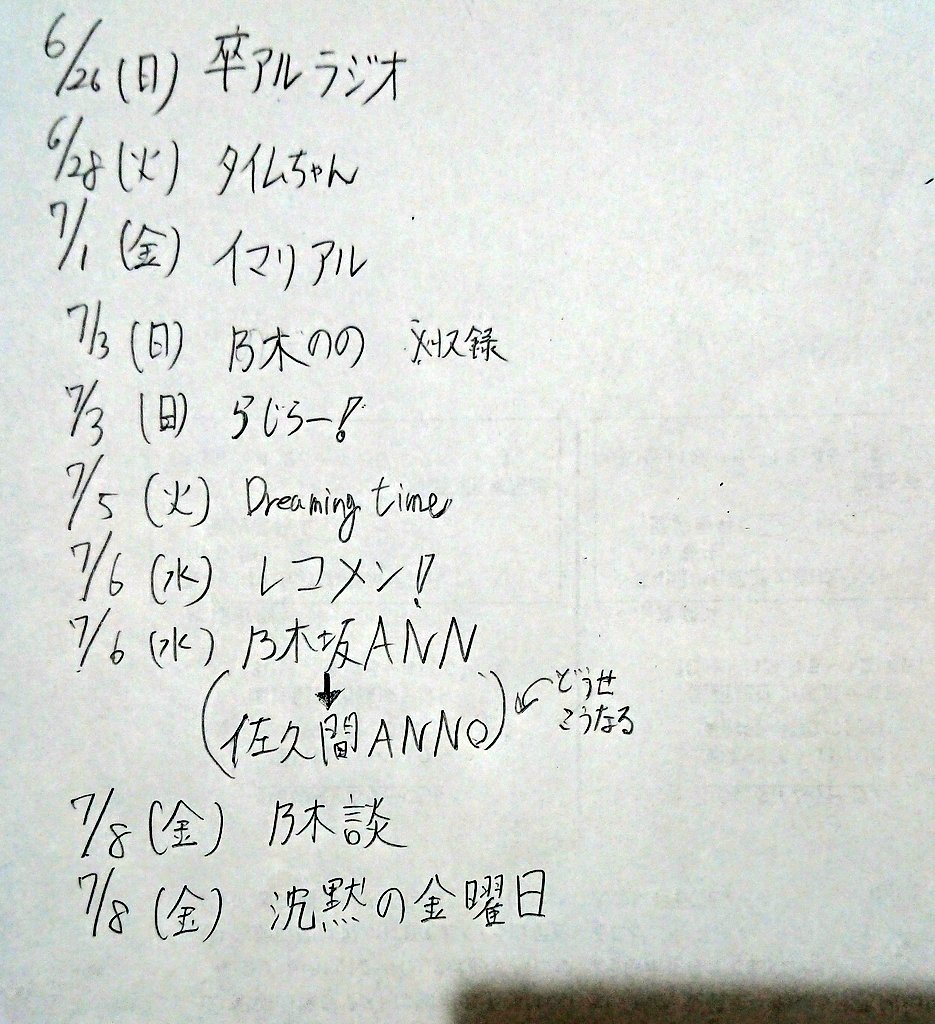 6/26 (日) 卒アルラジオ
6/28 (火) タイムちゃん
7/1 (金) イマリアル
7/3 (日) 乃木のの ※収録
7/3 (日) らじらー!
7/5 (火) Dreaming time
7/6 (水) レコメン!
7/6 (水) 乃木坂ANN
↓
(佐久間ANN0) ← どうせ
こうなる
7/8 (金) 乃木談
7/8 (金) 沈黙の金曜日